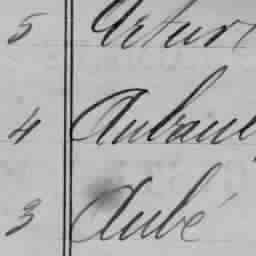 5 Artur
4 Aubaul
3 Aubé